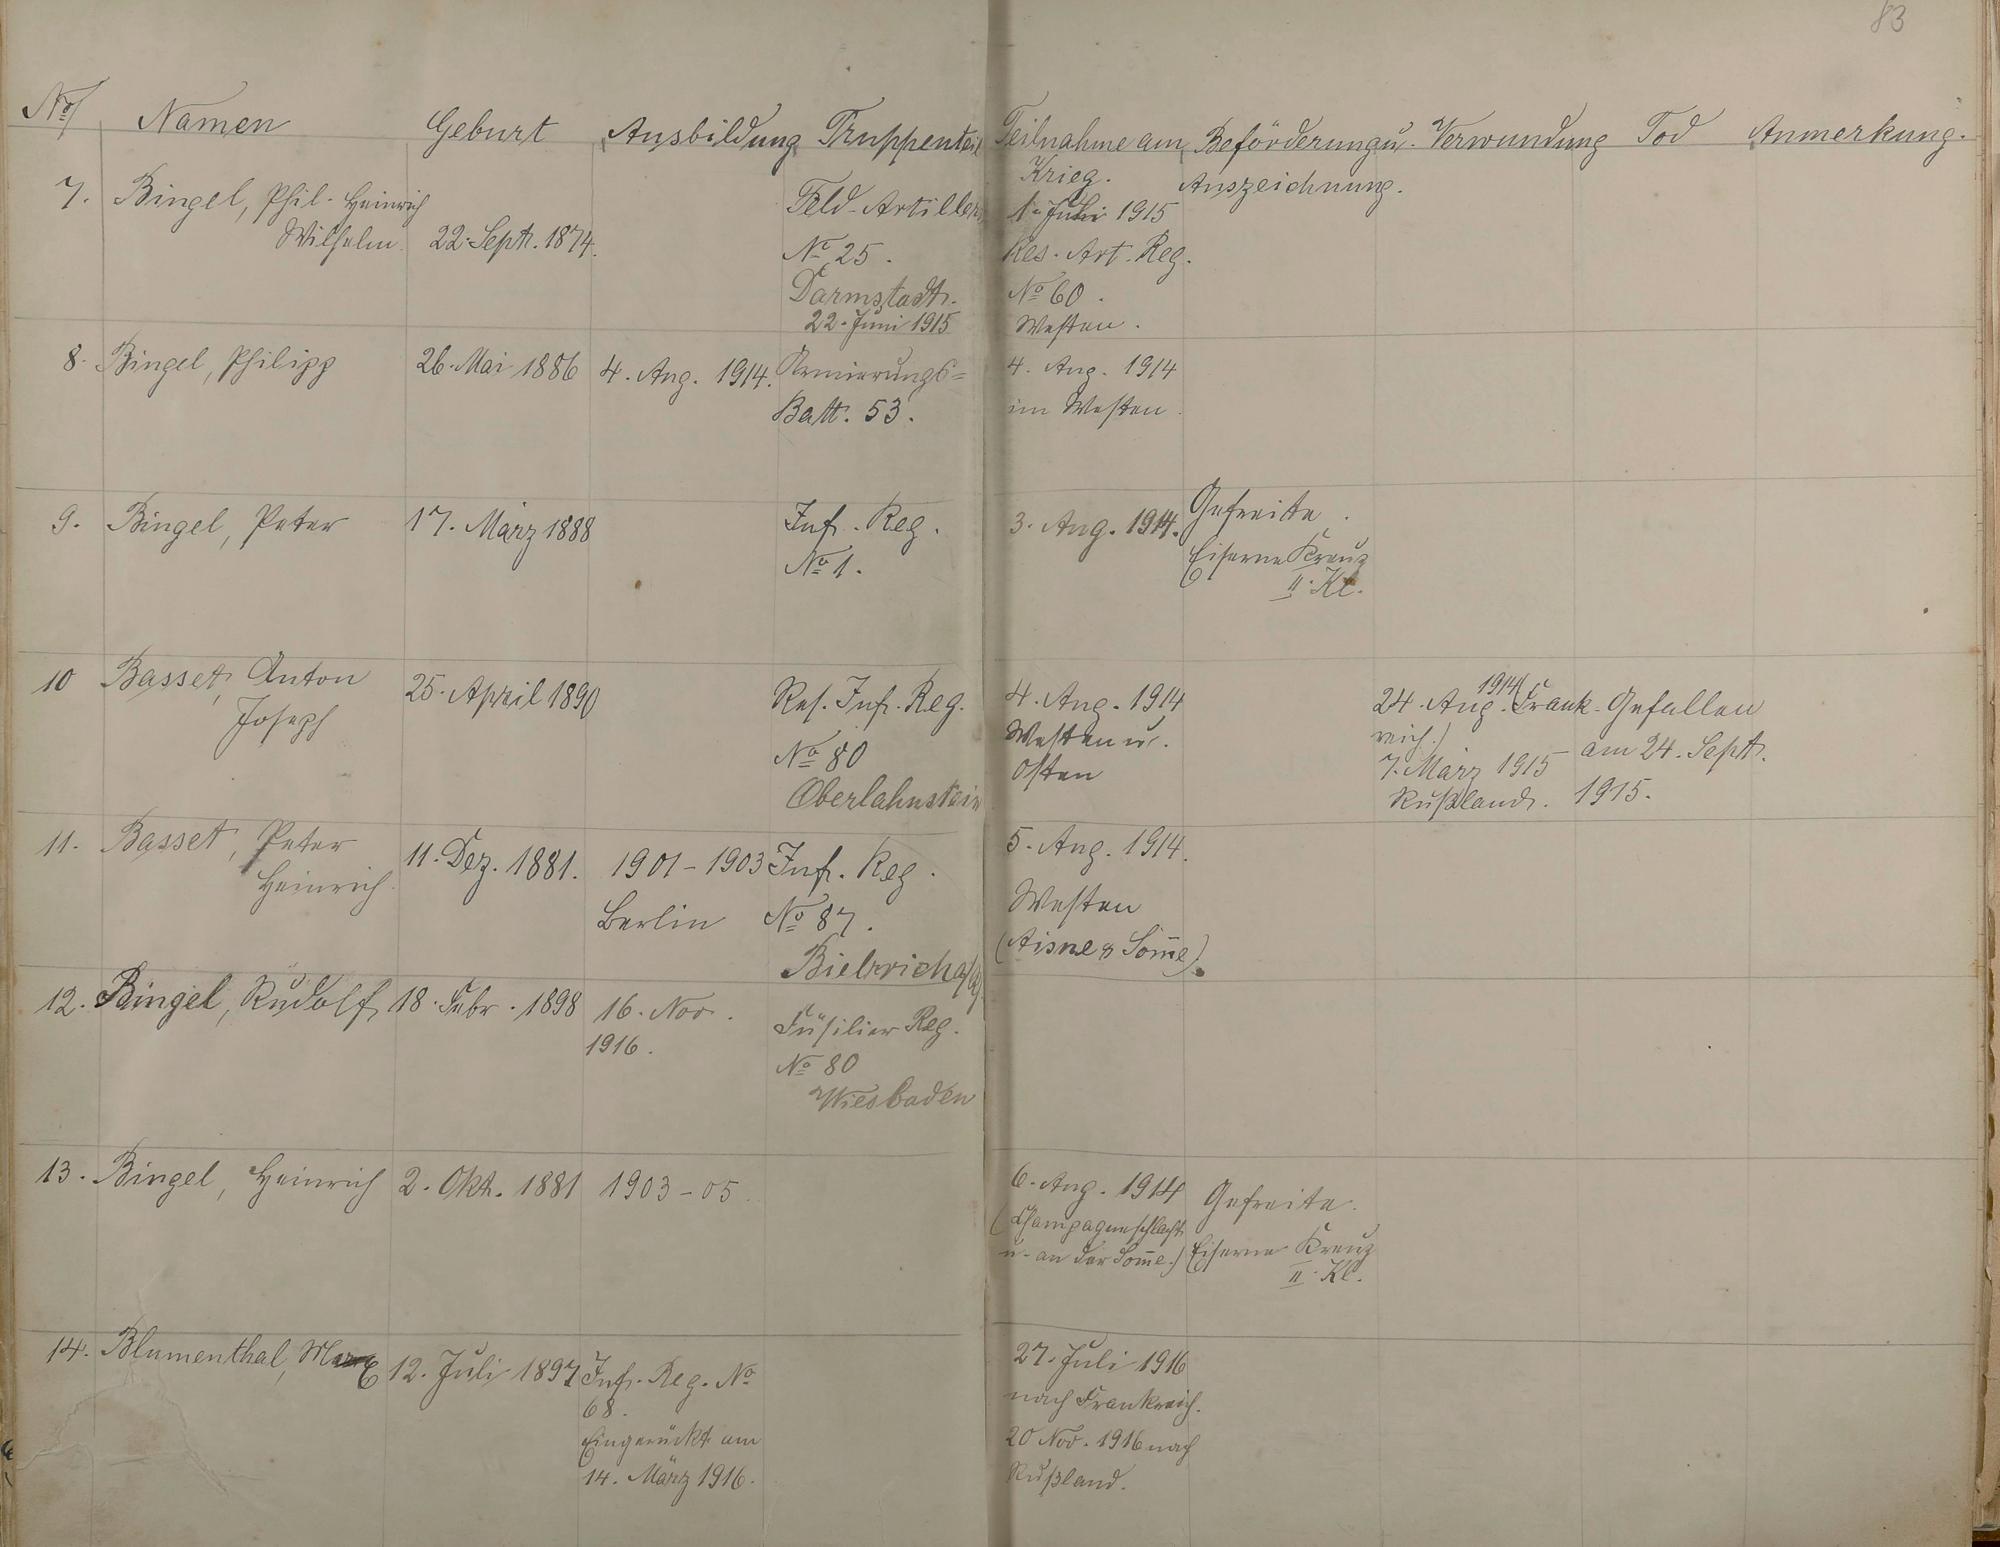 83
No Namen Geburt Ausbildung Truppenteil Teilnahme am Krieg. Beförderung u. Auszeichnung. Verwundung Tod Anmerkung.
7. Bingel, Phil. Heinrich
Wilhelm. 22. Sept. 1874.
Feld-Artillerie
No 25.
Darmstadt.
22. Juni 1915
1. Juli 1915
Res. Art. Reg.
No 60.
Westen.
8. Bingel, Philipp 26. Mai 1886 4. Aug. 1914. Armierungs=
Batt. 53.
4. Aug. 1914
im Westen.
9. Bingel, Peter 17. März 1888
Inf. Reg.
No 1.
3. Aug. 1914.
Gefreite.
Eiserne Kreuz
II. Kl.
10 Basset, Anton
Joseph
25. April 1890
Res. Inf. Reg.
No 80
Oberlahnstein
4. Aug. 1914
Westen u.
Osten
24. Aug. 1914 (Frank-
reich.)
7. März 1915
Rußland.
Gefallen
am 24. Sept.
1915.
11. Basset, Peter
Heinrich.
11. Dez. 1881.
1901-1903
Berlin
Inf. Reg.
No 87.
5. Aug. 1914.
Westen
(Aisne & Som̅e).
12. Bingel, Rudolf 18. Febr. 1898
16. Nov.
1916.
Füsilier Reg.
No 80
Wiesbaden
13. Bingel, Heinrich 2. Okt. 1881 1903-05.
6. Aug. 1914
(Champagneschlacht
u. an der Som̅e.)
Gefreite.
Eiserne Kreuz
II. Kl.
14. Blumenthal, 12. Juli 1897
Inf. Reg. No
68.
Eingerückt am
14. März 1916.
27. Juli 1916
nach Frankreich.
20 Nov. 1916 nach
Rußland.